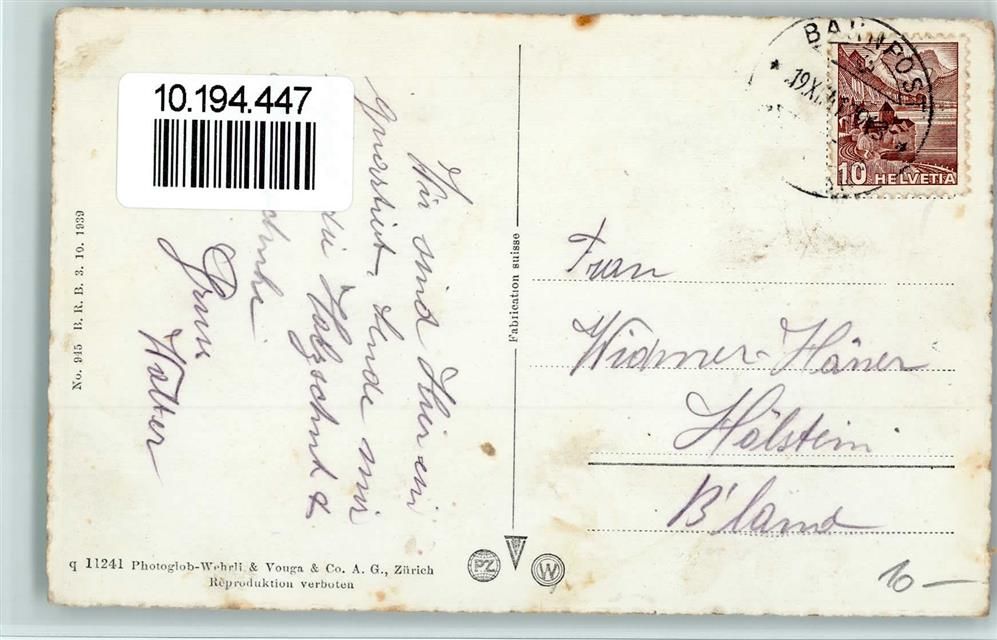 10.194.447
Wir sind hier in
sende mir
die Holzschuhe &
Gruss
Walter
No. 945 B. R. B. 3. 10. 1939
Fabrication suisse
BAHNPOST
10 HELVETIA
Frau
Widmer-Häner
Hölstein
B'land
q 11241 Photoglob-Wehrli & Vouga & Co. A. G., Zürich
Reproduktion verboten
PZ
W
10 –